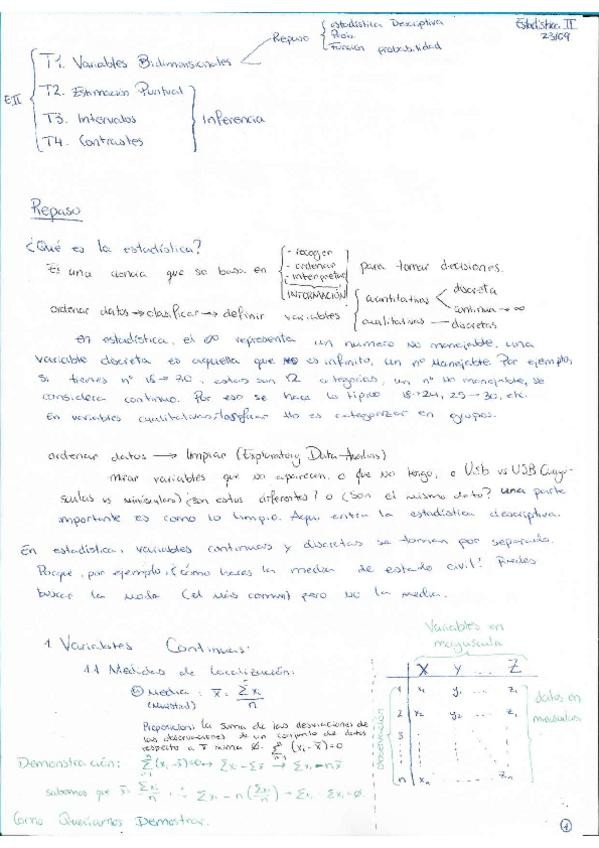 Estadística II
23/09
Repaso { estadística Descriptiva
Prob.
Función probabilidad
EII { T1. Variables Bidimensionales
T2. Estimación Puntual
T3. Intervalos } Inferencia
T4. Contrastes
Repaso
¿Qué es la estadística?
Es una ciencia que se basa en { - recoger - ordenar - interpretar } para tomar decisiones.
INFORMACIÓN
ordenar datos → clasificar → definir variables { cuantitativas < discreta
continua → ∞
cualitativas — discretas
en estadística, el ∞ representa un numero no manejable. una
variable discreta es aquella que no es infinito, un nº manejable. Por ejemplo,
si tienes nº 18 → 30, estas son 12 categorías, un nº no manejable, se
considera continuo. Por eso se hace lo típico 18→24, 25→30, etc.
En variables cualitativas no es categorizar en grupos.
ordenar datos → limpiar (Exploratory Data Analisis)
mirar variables que no aparecen, o que no tengo, o Usb vs USB (mayú-
sculas vs minúsculas) ¿son estas diferentes? o ¿Son el mismo dato? una parte
importante es como lo limpio. Aquí entra la estadística descriptiva.
En estadística, variables continuas y discretas se toman por separado.
Porque, por ejemplo, ¿cómo haces la media de estado civil? Puedes
buscar la moda (el más común) pero no la media.
1 Variables Continuas:
1.1 Medidas de localización:
a) Media: x̄ = Σ xi / n
(muestral)
Proposición: la suma de las desviaciones de
las observaciones de un conjunto de datos
respecto a x̄ suma Ø. Σ (xi - x̄) = 0
Demostración: Σ(xi - x̄) = 0 → Σxi - Σx̄ → Σxi - nx̄
sabemos que x̄ = Σxi / n ∴ Σxi - n(Σxi / n) → Σxi - Σxi = Ø
Como Queríamos Demostrar.
Variables en
mayuscula
X Y ... Z
1 x1 y1 ... z1
2 x2 y2 ... z2
3
n xn zn
observación
datos en
minusculas
1